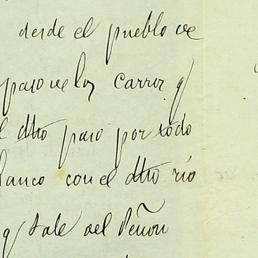 desde el pueblo de
paso de los carros q
el dho paso por todo
lanco con el dho río
q sale del Peñon